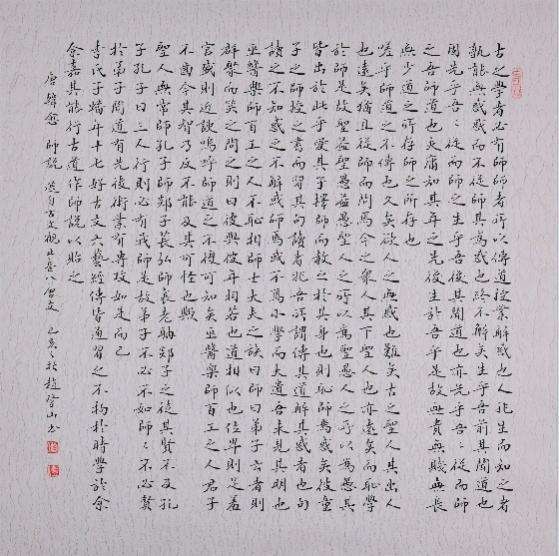 古之學者必有師師者所以傳道授業解惑也人非生而知之者
孰能無惑惑而不從師其為惑也終不解矣生乎吾前其聞道也
固先乎吾〻從而師之生乎吾後其聞道也亦先乎吾〻從而師
之吾師道也夫庸知其年之先後生於吾乎是故無貴無賤無長
無少道之所存師之所存也
嗟乎師道之不傳也久矣欲人之無惑也難矣古之聖人其出人
也遠矣猶且從師而問焉今之衆人其下聖人也亦遠矣而恥學
於師是故聖益聖愚益愚聖人之所以為聖愚人之所以為愚其
皆出於此乎愛其子擇師而教之於其身也則恥師焉惑矣彼童
子之師授之書而習其句讀者非吾所謂傳其道解其惑者也句
讀之不知惑之不解或師焉或不焉小學而大遺吾未見其明也
巫醫樂師百工之人不恥相師士大夫之族曰師曰弟子云者則
群聚而笑之問之則曰彼與彼年相若也道相似也位卑則足羞
官盛則近諛嗚呼師道之不復可知矣巫醫樂師百工之人君子
不齒今其智乃反不能及其可怪也歟
聖人無常師孔子師郯子萇弘師襄老聃郯子之徒其賢不及孔
子孔子曰三人行則必有我師是故弟子不必不如師〻不必賢
於弟子聞道有先後術業有專攻如是而已
李氏子蟠年十七好古文六藝經傳皆通習之不拘於時學於余
余嘉其能行古道作師說以貽之
唐韓愈師說 選自古文觀止卷八唐文 己亥 趙登山書